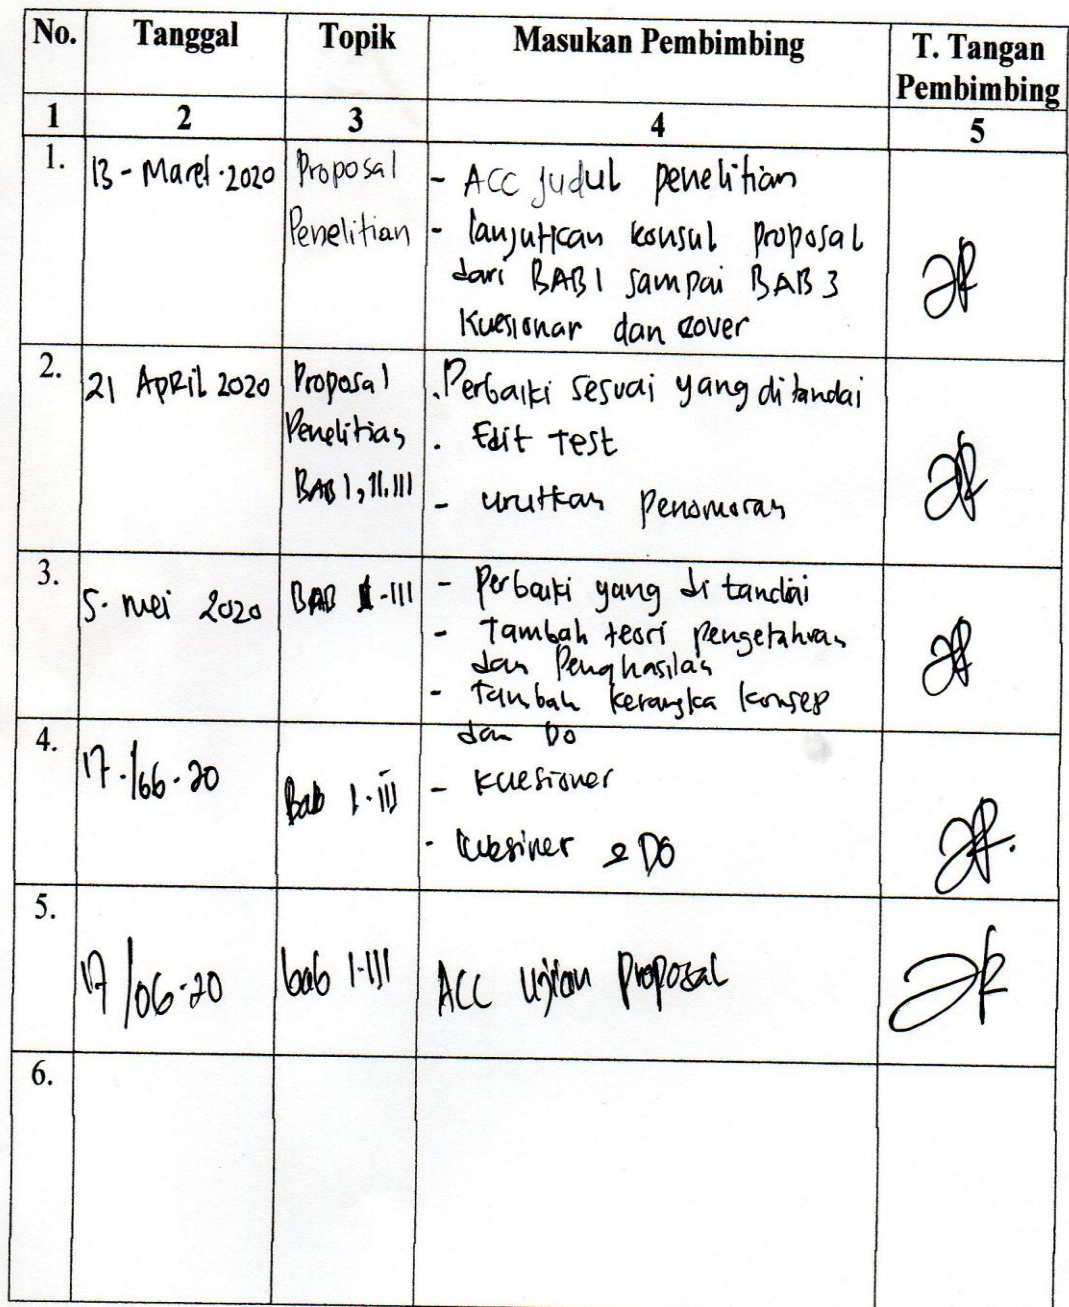 No. Tanggal Topik Masukan Pembimbing T. Tangan
Pembimbing
1 2 3 4 5
1. 13 - Maret - 2020 Proposal - ACC judul penelitian
Penelitian - lanjutkan konsul proposal
dari BAB 1 sampai BAB 3
Kuesionar dan cover
2. 21 APRil 2020 Proposal . Perbaiki sesuai yang di tandai
Penelitian . Edit Test
BAB I, II, III - urutkan Penomoran
3. 5 - mei 2020 BAB I-III - Perbaiki yang di tandai
- Tambah teori pengetahuan
dan Penghasilan
- Tambah kerangka konsep
dan DO
4. 17 - /06 - 20 Bab I - III - Kuesioner
- Kuesiner & DO
5. 17 /06 - 20 bab I-III ACC Ujian Proposal
6.